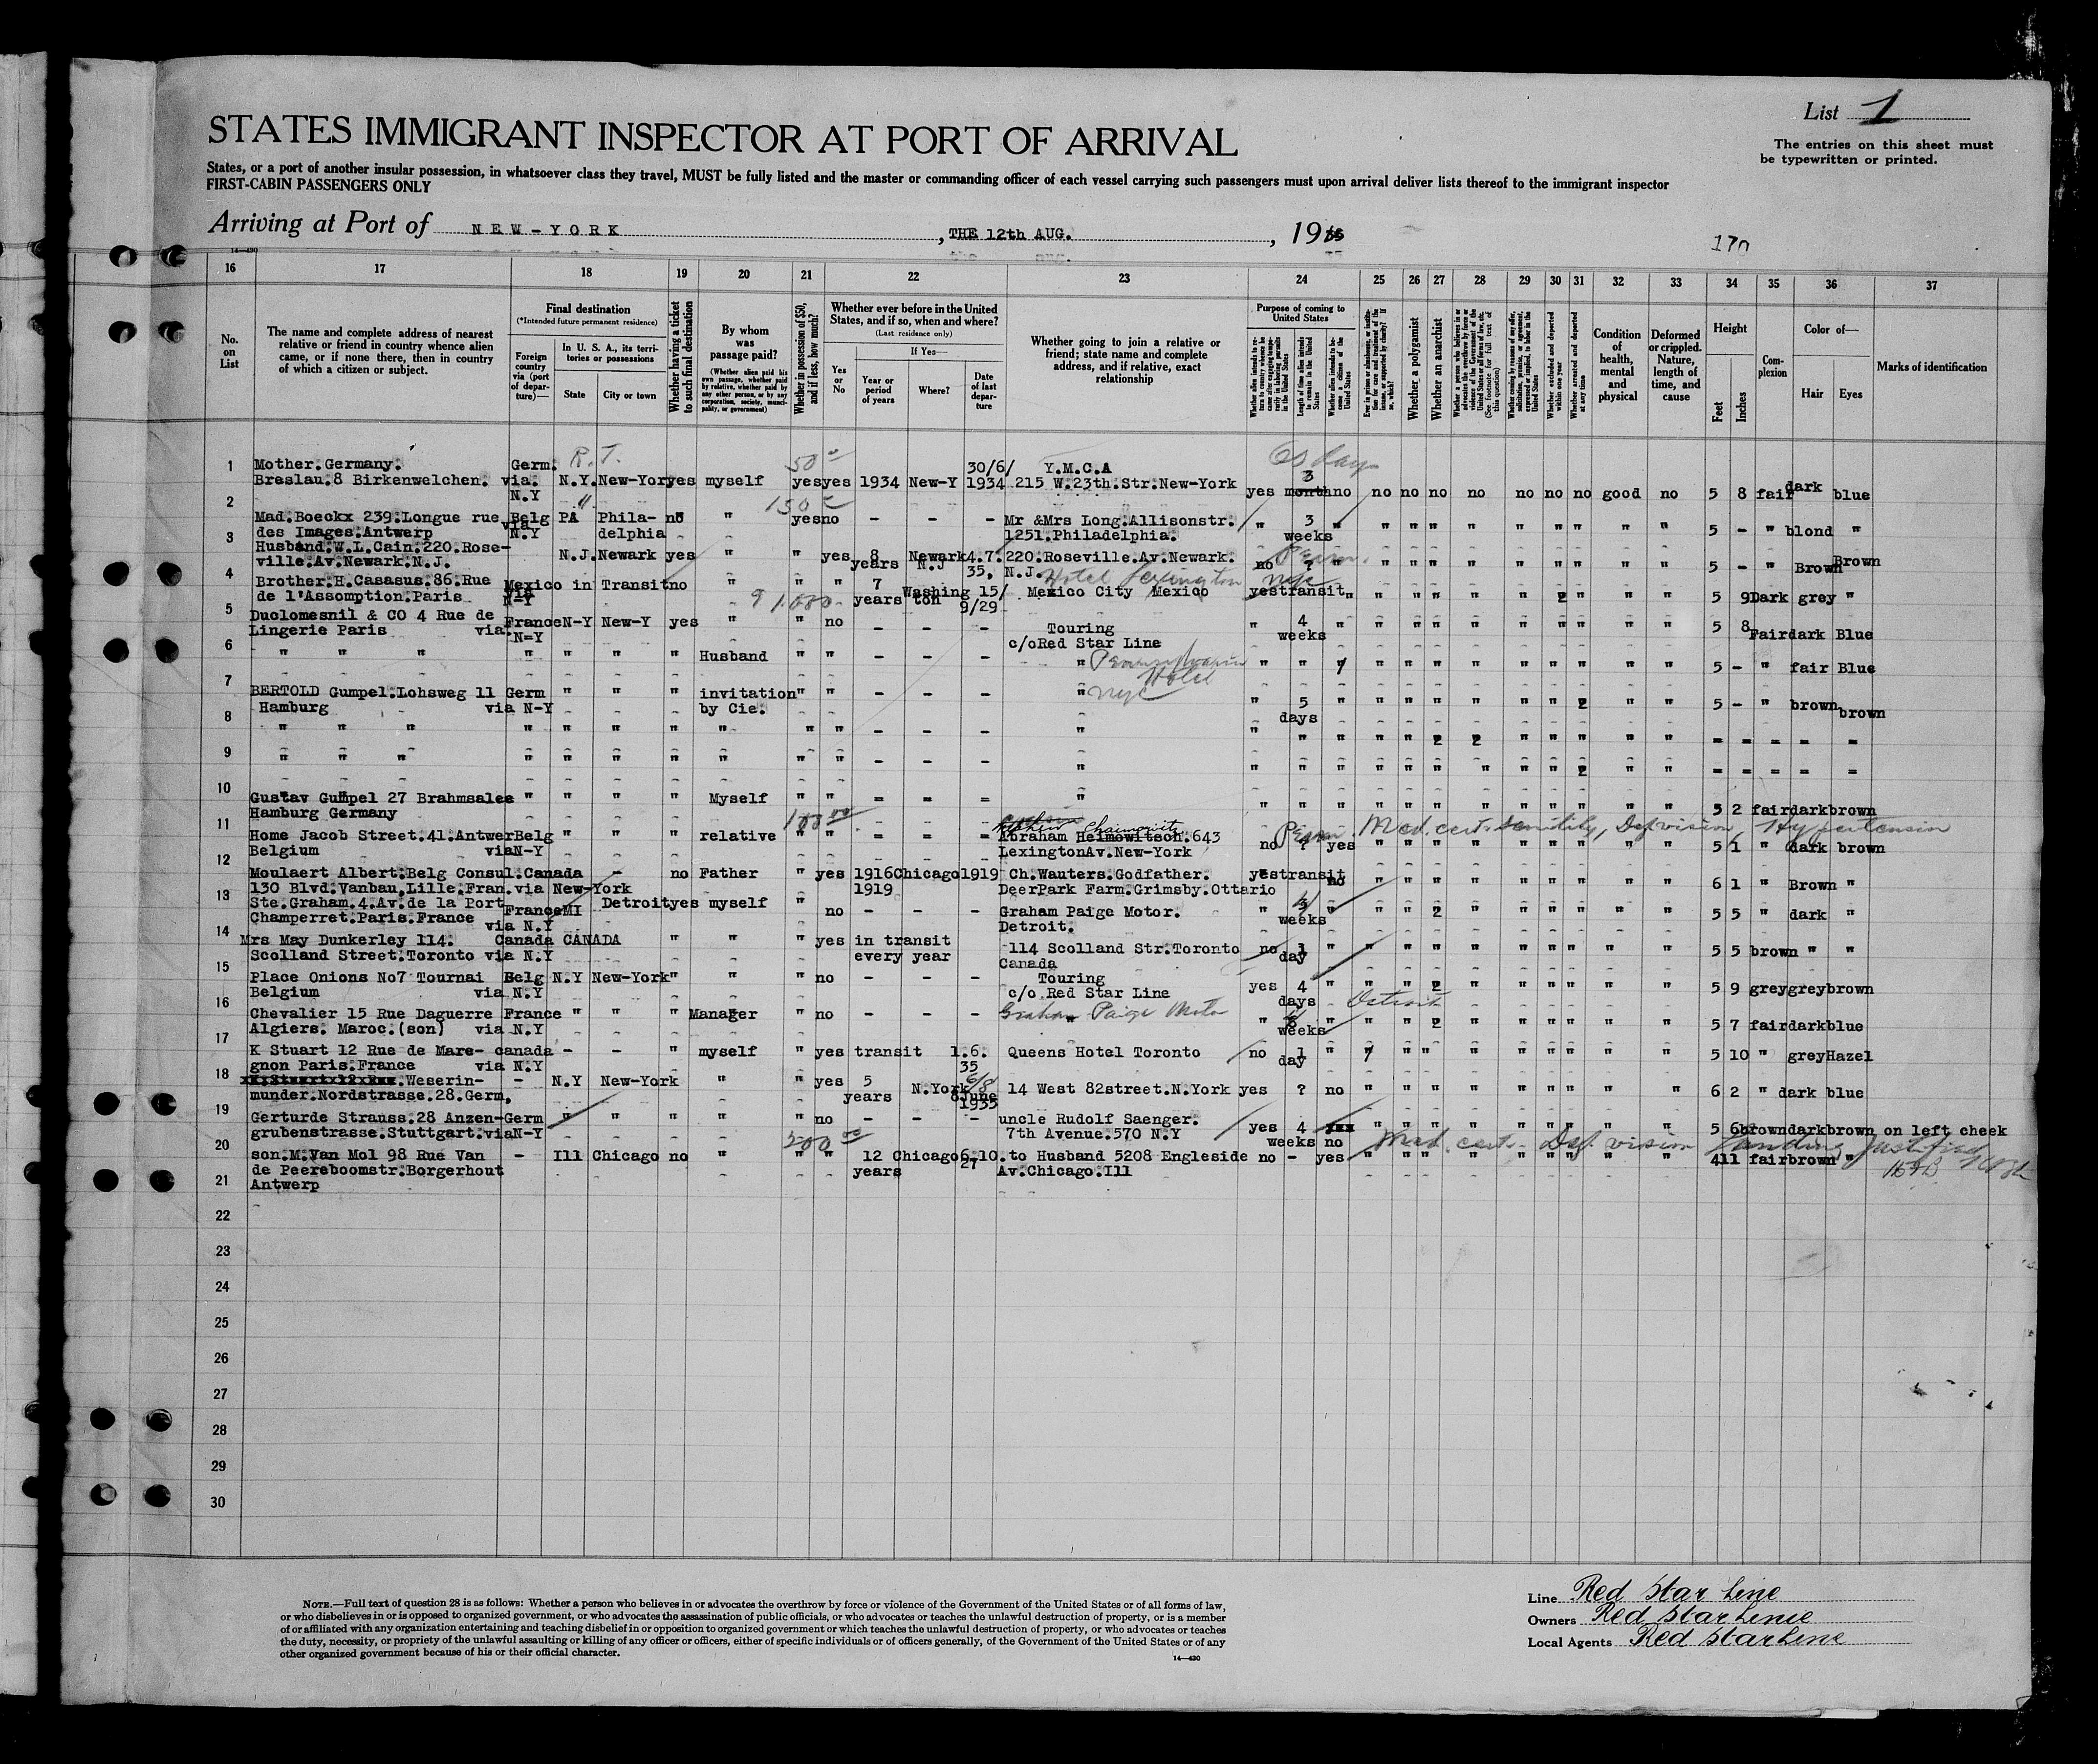 List 1
STATES IMMIGRANT INSPECTOR AT PORT OF ARRIVAL
The entries on this sheet must
be typewritten or printed.
States, or a port of another insular possession, in whatsoever class they travel, MUST be fully listed and the master or commanding officer of each vessel carrying such passengers must upon arrival deliver lists thereof to the immigrant inspector
FIRST-CABIN PASSENGERS ONLY
Arriving at Port of NEW-YORK, THE 12th AUG., 19
14—430
16 17 18 19 20 21 22 23 24 25 26 27 28 29 30 31 32 33 34 35 36 37
No. on List
The name and complete address of nearest relative or friend in country whence alien came, or if none there, then in country of which a citizen or subject.
Final destination
(*Intended future permanent residence)
Foreign country via (port of departure)—
In U. S. A., its territories or possessions
State
City or town
Whether having a ticket to such final destination
By whom was passage paid?
(Whether alien paid his own passage, whether paid by relative, whether paid by any other person, or by any corporation, society, municipality, or government)
Whether in possession of $50, and if less, how much?
Whether ever before in the United States, and if so, when and where?
(Last residence only)
Yes or No
If Yes—
Year or period of years
Where?
Date of last departure
Whether going to join a relative or friend; state name and complete address, and if relative, exact relationship
Purpose of coming to United States
Length of time alien intends to remain in the United States
Whether a polygamist
Whether an anarchist
Whether excluded and deported within one year
Whether arrested and deported at any time
Condition of health, mental and physical
Deformed or crippled. Nature, length of time, and cause
Height
Feet
Inches
Complexion
Color of—
Hair
Eyes
Marks of identification
1 Mother.Germany. Germ. R.T. 50 30/6/ Y.M.C.A 60 days
Breslau.8 Birkenwelchen. via. N.Y. New-York yes myself yes yes 1934 New-Y 1934 215 W.23th.Str.New-York 3
N.Y yes month no no no no no no no no good no 5 8 fair dark blue
2 150
Mad.Boeckx 239.Longue rue Belg PA Phila- no " yes no - - - Mr &Mrs Long.Allisonstr. " 3 " " " " " " " " " " 5 - " blond "
des Images.Antwerp via N.Y delphia 1251.Philadelphia. weeks
3 Husband.W.L.Cain.220.Rose- N.J. Newark yes " " yes 8 Newark 4.7. 220.Roseville.Av.Newark. Perm.
ville.Av.Newark.N.J. years N.J 35, N.J. no ? " " " " " " " " " " 5 - " Brown Brown
4 Brother.H.Casasus.86.Rue Mexico in Transit no " " " 7 Hotel Lexington nyc
de l'Assomption.Paris via N-Y years Washington 15/ Mexico City Mexico yes transit " " " " " " 2 " " " 5 9 Dark grey "
9/29
5 Duclomesnil & CO 4 Rue de France N-Y New-Y yes " " no - - - Touring " 4 " " " " " " " " " " 5 8 Fair dark Blue
Lingerie Paris via. N-Y c/o Red Star Line weeks
6 " " " " " " " Husband " " - - - " Pennsylvania Hotel nyc " " " " " " " " " " 5 - " fair Blue
7 BERTOLD Gumpel.Lohsweg 11 Germ " " " invitation " " - - - " " 5 " " " " " " " 2 " " 5 - " brown brown
Hamburg via N-Y by Cie. days
8 " " " " " " " " " " - - - " " " " " " 2 2 " " " " " - - - - -
9 " " " " " " " " " " - - - " " " " " " " " " " 2 " " - - - - -
10 Gustav Gumpel 27 Brahmsalee " " " " Myself " " - - - " " " " " " " " " " " " " 5 2 fair dark brown
Hamburg Germany
11 100.00 Nephew Chaimowitz Med. cert. senility, Def vision, Hypertension
Home Jacob Street.41.Antwer Belg " " " relative " " - - - Abraham Heimowitsch.643 Perm.
Belgium via N-Y Lexington Av.New-York no ? yes " " " " " " " " " 5 1 " dark brown
12 Moulaert Albert.Belg Consul.Canada - no Father " yes 1916 Chicago 1919 Ch.Wauters.Godfather. yes transit no " " " " " " " " " 6 1 " Brown "
130 Blvd.Vanbau,Lille.Fran. via New-York 1919 DeerPark Farm.Grimsby.Ottario
13 Ste.Graham.4.Av.de la Port France MI Detroit yes myself " no - - - Graham Paige Motor. " " " " 2 " " " " " " 5 5 " dark "
Champerret.Paris.France via N.Y Detroit. weeks
14 Mrs May Dunkerley 114. Canada CANADA " " " yes in transit 114 Scolland Str.Toronto no 1 " " " " " " " " " " 5 5 brown " "
Scolland Street.Toronto via N.Y every year Canada day
15 Place Onions No7 Tournai Belg N.Y New-York " " " no - - - Touring yes 4 " " " 2 " " " " " " 5 9 grey grey brown
Belgium via N.Y c/o Red Star Line days
16 Chevalier 15 Rue Daguerre France " " " Manager " no - - - Graham Paige Motor Detroit " " " " 2 " " " " " " 5 7 fair dark blue
Algiers. Maroc.(son) via N.Y weeks
17 K Stuart 12 Rue de Mare- canada - - " myself " yes transit 1.6. Queens Hotel Toronto no 1 " " " " " " " " " " 5 10 " grey Hazel
gnon Paris.France via N.Y 35 day
18 .Weserin- - N.Y New-York " " yes 5 N.York 8June 14 West 82street.N.York yes ? no " " " " " " " " " 6 2 " dark blue
munder.Nordstrasse.28.Germ. years 1935
19 Gerturde Strauss.28 Anzen- Germ " " " " " no - - - uncle Rudolf Saenger. yes 4 " " " " " " " " " 5 6 brown dark brown on left cheek
grubenstrasse.Stuttgart.via N-Y 7th Avenue.570 N.Y weeks no
20 200.00 Med. cert. Def vision Landing Justified
son.M.Van Mol 98 Rue Van - Ill Chicago no " " " 12 Chicago 6.10. to Husband 5208 Engleside no - yes " " " " " " " " " 4 11 fair brown "
de Peereboomstr.Borgerhout years 27 Av.Chicago.Ill
21 Antwerp
22
23
24
25
26
27
28
29
30
NOTE.—Full text of question 28 is as follows: Whether a person who believes in or advocates the overthrow by force or violence of the Government of the United States or of all forms of law,
or who disbelieves in or is opposed to organized government, or who advocates the assassination of public officials, or who advocates or teaches the unlawful destruction of property, or is a member
of or affiliated with any organization entertaining and teaching disbelief in or opposition to organized government or which teaches the unlawful destruction of property, or who advocates or teaches
the duty, necessity, or propriety of the unlawful assaulting or killing of any officer or officers, either of specific individuals or of officers generally, of the Government of the United States or of any
other organized government because of his or their official character.
14—430
Line Red Star Line
Owners Red Star Linie
Local Agents Red Star Line